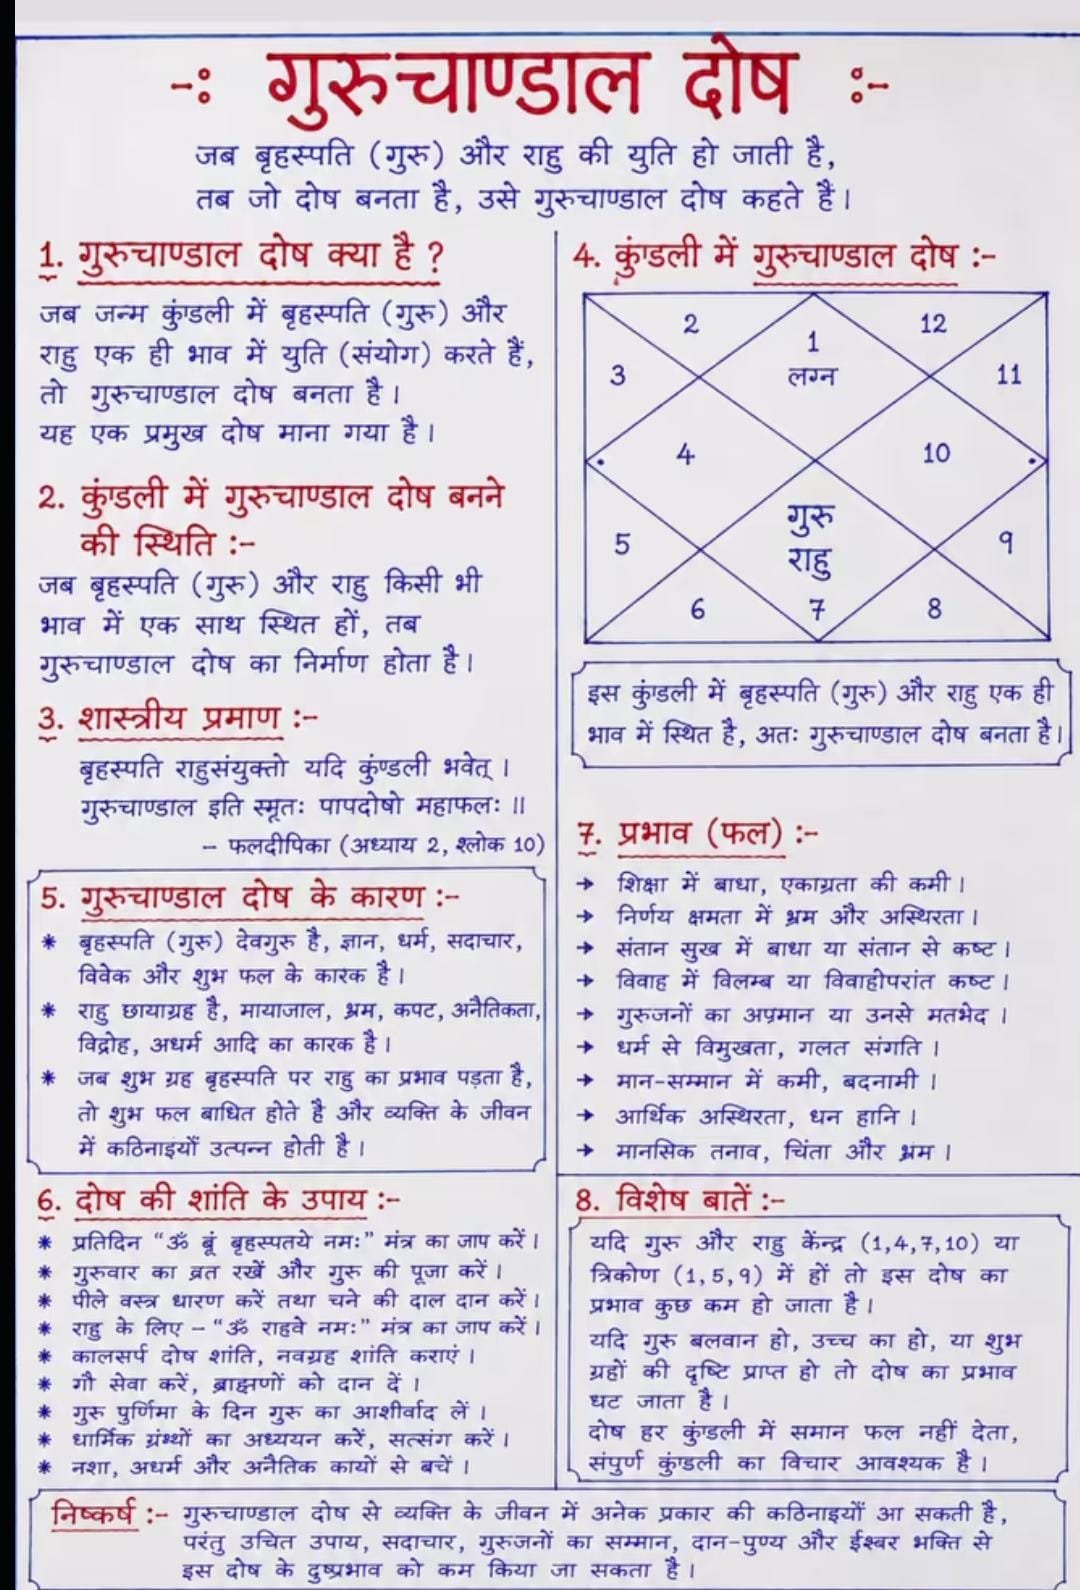 -: गुरुचाण्डाल दोष :-
जब बृहस्पति (गुरु) और राहु की युति हो जाती है,
तब जो दोष बनता है, उसे गुरुचाण्डाल दोष कहते हैं।
1. गुरुचाण्डाल दोष क्या है ?
जब जन्म कुंडली में बृहस्पति (गुरु) और
राहु एक ही भाव में युति (संयोग) करते हैं,
तो गुरुचाण्डाल दोष बनता है।
यह एक प्रमुख दोष माना गया है।
2. कुंडली में गुरुचाण्डाल दोष बनने
की स्थिति :-
जब बृहस्पति (गुरु) और राहु किसी भी
भाव में एक साथ स्थित हों, तब
गुरुचाण्डाल दोष का निर्माण होता है।
3. शास्त्रीय प्रमाण :-
बृहस्पति राहुसंयुक्तो यदि कुंण्डली भवेत् ।
गुरुचाण्डाल इति स्मृतः पापदोषो महाफलः ॥
- फलदीपिका (अध्याय 2, श्लोक 10)
4. कुंडली में गुरुचाण्डाल दोष :-
2
1
12
3
लग्न
11
4
10
गुरु
5
राहु
9
6
7
8
इस कुंडली में बृहस्पति (गुरु) और राहु एक ही
भाव में स्थित है, अतः गुरुचाण्डाल दोष बनता है।
5. गुरुचाण्डाल दोष के कारण :-
* बृहस्पति (गुरु) देवगुरु है, ज्ञान, धर्म, सदाचार,
विवेक और शुभ फल के कारक है।
* राहु छायाग्रह है, मायाजाल, भ्रम, कपट, अनैतिकता,
विद्रोह, अधर्म आदि का कारक है।
* जब शुभ ग्रह बृहस्पति पर राहु का प्रभाव पड़ता है,
तो शुभ फल बाधित होते है और व्यक्ति के जीवन
में कठिनाइयाँ उत्पन्न होती है।
7. प्रभाव (फल) :-
→ शिक्षा में बाधा, एकाग्रता की कमी।
→ निर्णय क्षमता में भ्रम और अस्थिरता।
→ संतान सुख में बाधा या संतान से कष्ट।
→ विवाह में विलम्ब या विवाहोपरांत कष्ट।
→ गुरुजनों का अपमान या उनसे मतभेद।
→ धर्म से विमुखता, गलत संगति।
→ मान-सम्मान में कमी, बदनामी।
→ आर्थिक अस्थिरता, धन हानि।
→ मानसिक तनाव, चिंता और भ्रम।
6. दोष की शांति के उपाय :-
* प्रतिदिन “ॐ बृं बृहस्पतये नमः” मंत्र का जाप करें।
* गुरुवार का व्रत रखें और गुरु की पूजा करें।
* पीले वस्त्र धारण करें तथा चने की दाल दान करें।
* राहु के लिए – “ॐ राहवे नमः” मंत्र का जाप करें।
* कालसर्प दोष शांति, नवग्रह शांति कराएं।
* गौ सेवा करें, ब्राह्मणों को दान दें।
* गुरु पुर्णिमा के दिन गुरु का आशीर्वाद लें।
* धार्मिक ग्रंथों का अध्ययन करें, सत्संग करें।
* नशा, अधर्म और अनैतिक कायों से बचें।
8. विशेष बातें :-
यदि गुरु और राहु केंन्द्र (1,4,7,10) या
त्रिकोण (1,5,9) में हों तो इस दोष का
प्रभाव कुछ कम हो जाता है।
यदि गुरु बलवान हो, उच्च का हो, या शुभ
ग्रहों की दृष्टि प्राप्त हो तो दोष का प्रभाव
घट जाता है।
दोष हर कुंडली में समान फल नहीं देता,
संपुर्ण कुंडली का विचार आवश्यक है।
निष्कर्ष :- गुरुचाण्डाल दोष से व्यक्ति के जीवन में अनेक प्रकार की कठिनाइयाँ आ सकती है,
परंतु उचित उपाय, सदाचार, गुरुजनों का सम्मान, दान-पुण्य और ईश्वर भक्ति से
इस दोष के दुष्प्रभाव को कम किया जा सकता है।